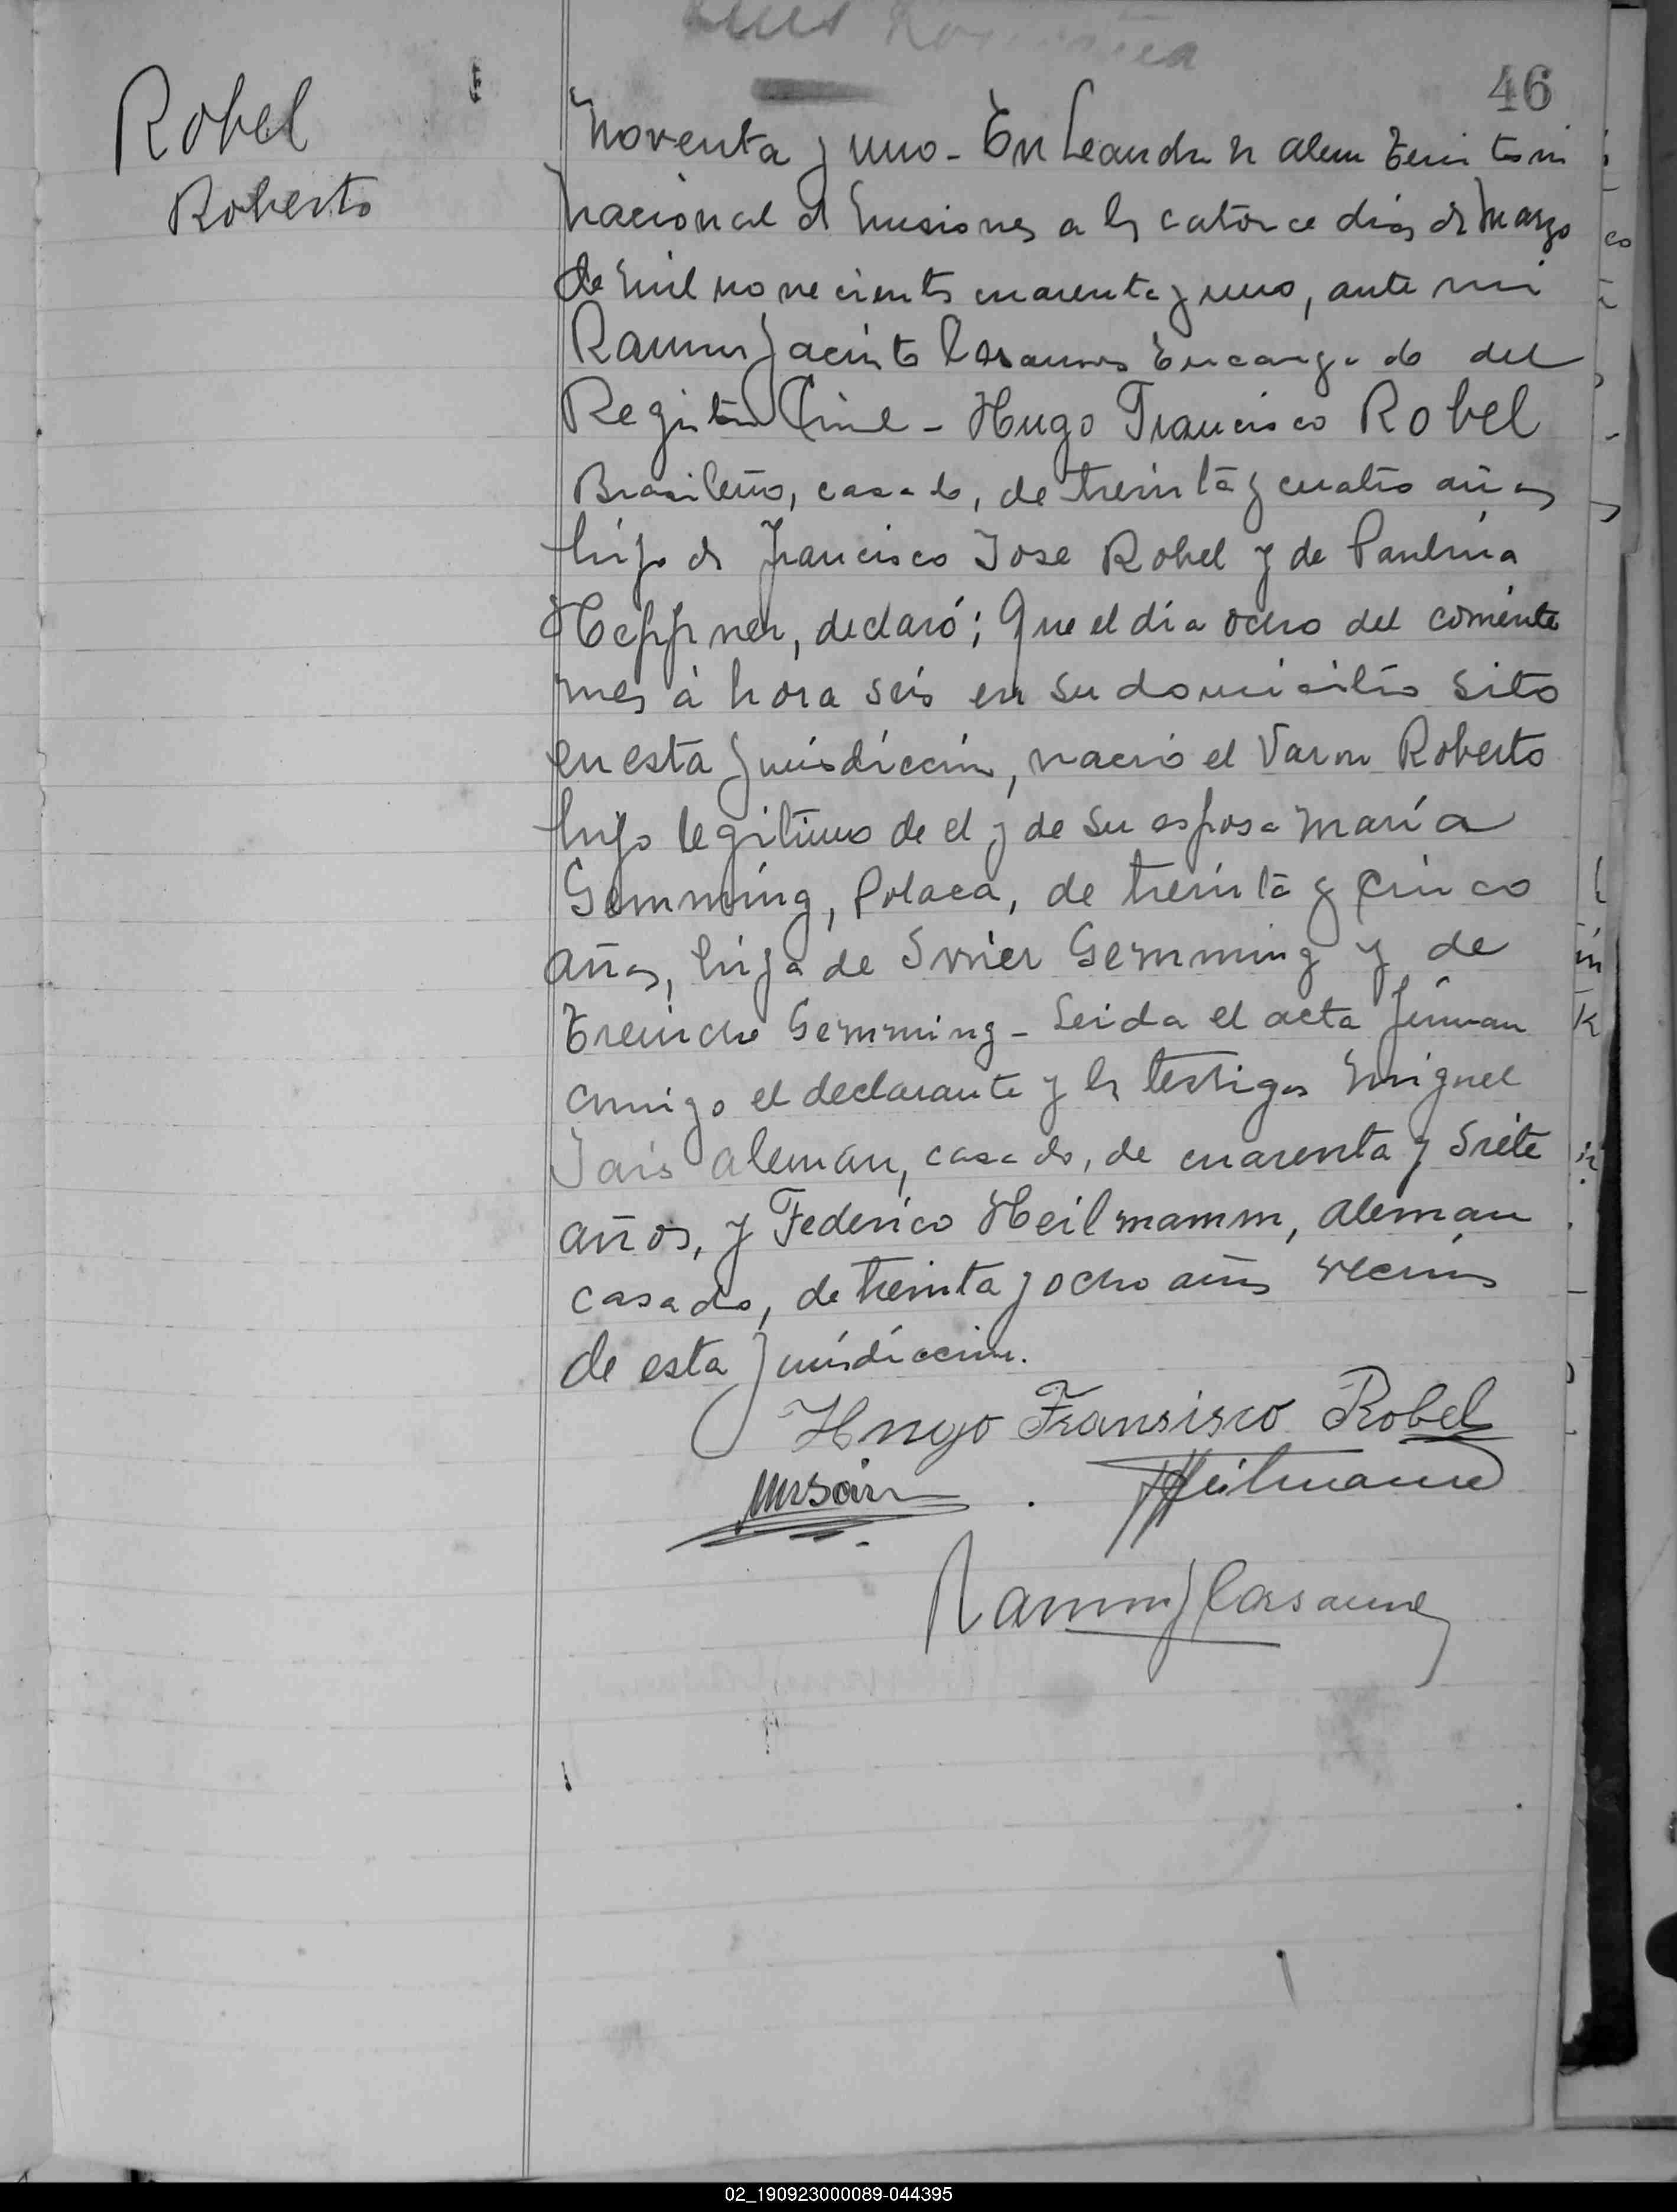 46
Robel
Roberto
Noventa y uno - En Leandro N Alem Territorio
Nacional de Misiones a los catorce dias de Marzo
de mil novecientos cuarenta y uno, ante mi
Ramon Jacinto Encargado del
Registro Civil - Hugo Francisco Robel
Brasileño, casado, de treinta y cuatro años
hijo de Francisco Jose Robel y de Paulina
Heppner, declaró; Que el día ocho del corriente
mes á hora seis en su domicilio sito
en esta Jurisdicción, nació el Varon Roberto
hijo legitimo de el y de su esposa María
Gemming, Polaca, de treinta y cinco
años, hija de Gemming y de
Gemming - Leida el acta firman
conmigo el declarante y los testigos Miguel
Aleman, casado, de cuarenta y siete
años, y Federico Heilmamm, Aleman
casado, de treinta y ocho años vecinos
de esta Jurisdiccion.
Hugo Fransisco Robel
Heilmann
Ramon J
02_190923000089-044395